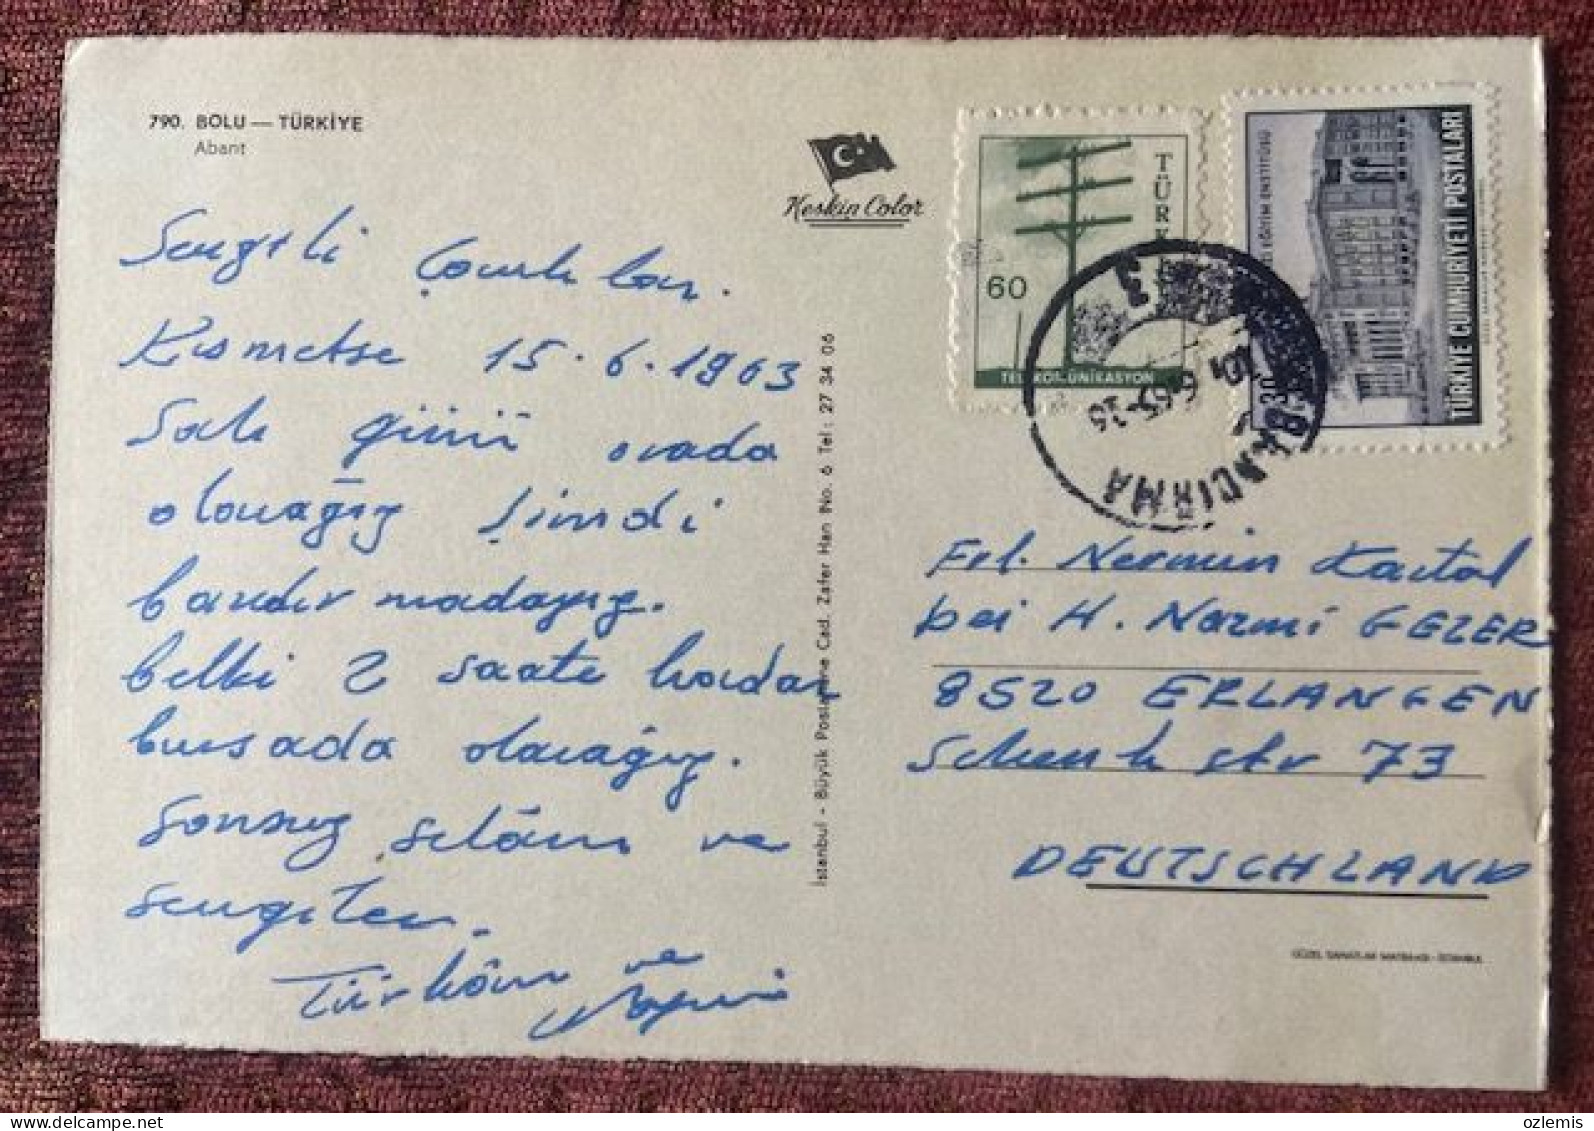 790. BOLU — TÜRKİYE
Abant
Keskin Color
Sevgili Çocuklar.
Kısmetse 15.6.1963
Salı günü orada
olacağız şimdi
bandırmadayız.
belki 2 saate kadar
bursada olacağız.
Sonsuz selâm ve
sevgiler.
Türkân ve
İstanbul - Büyük Postahane Cad. Zafer Han No. 6 Tel: 27 34 06
60
TELEKOMÜNİKASYON
EĞİTİM ENSTİTÜSÜ
TÜRKİYE CUMHURİYETİ POSTALARI
BANDIRMA
Frl. Nermin Kartal
bei H. Nazmi GEZER
8520 ERLANGEN
Schenkstr 73
DEUTSCHLAND
GÜZEL SANATLAR MATBAASI - İSTANBUL
ozlemis